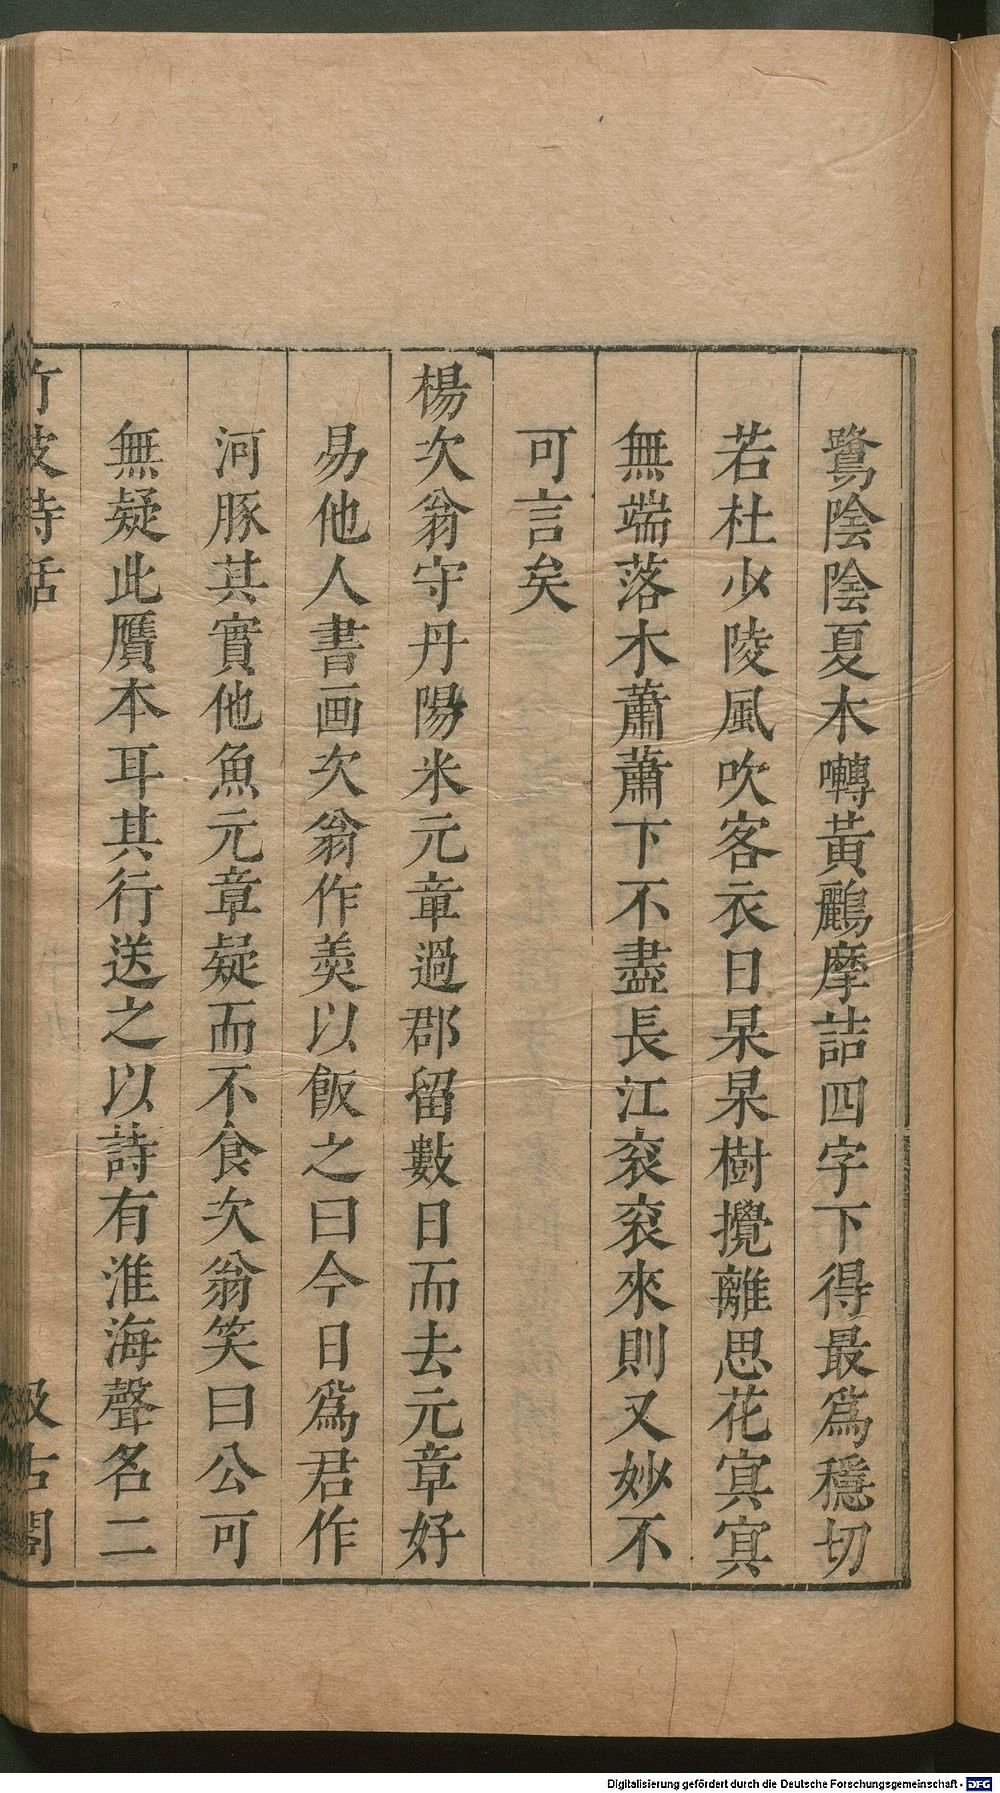 鷺陰陰夏木囀黃鸝摩詰四字下得最爲穩切
若杜少陵風吹客衣日杲杲樹攪離思花冥冥
無端落木蕭蕭下不盡長江衮衮來則又妙不
可言矣
楊次翁守丹陽米元章過郡留數日而去元章好
易他人書画次翁作羮以飯之曰今日爲君作
河豚其實他魚元章疑而不食次翁笑曰公可
無疑此贋本耳其行送之以詩有淮海聲名二
竹坡詩話
汲古閣
Digitalisierung gefördert durch die Deutsche Forschungsgemeinschaft - DFG